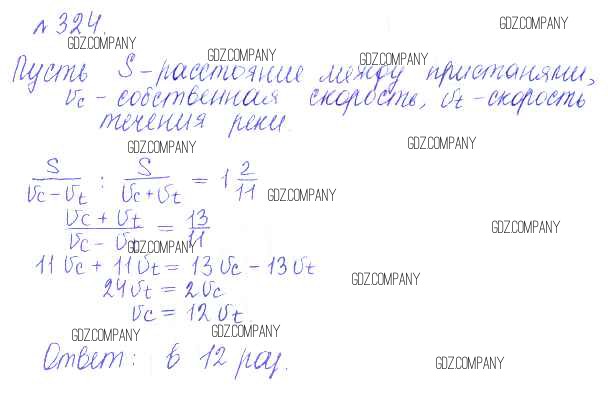 № 324.
GDZ.COMPANY
GDZ.COMPANY
GDZ.COMPANY
GDZ.COMPANY
Пусть S - расстояние между пристанями,
Vc - собственная скорость, Vt - скорость
течения реки.
GDZ.COMPANY
GDZ.COMPANY
S/(Vc - Vt) : S/(Vc + Vt) = 1 2/11
GDZ.COMPANY
(Vc + Vt)/(Vc - Vt) = 13/11
GDZ.COMPANY
GDZ.COMPANY
11Vc + 11Vt = 13Vc - 13Vt
GDZ.COMPANY
24Vt = 2Vc
Vc = 12Vt
GDZ.COMPANY
GDZ.COMPANY
Ответ: в 12 раз.
GDZ.COMPANY